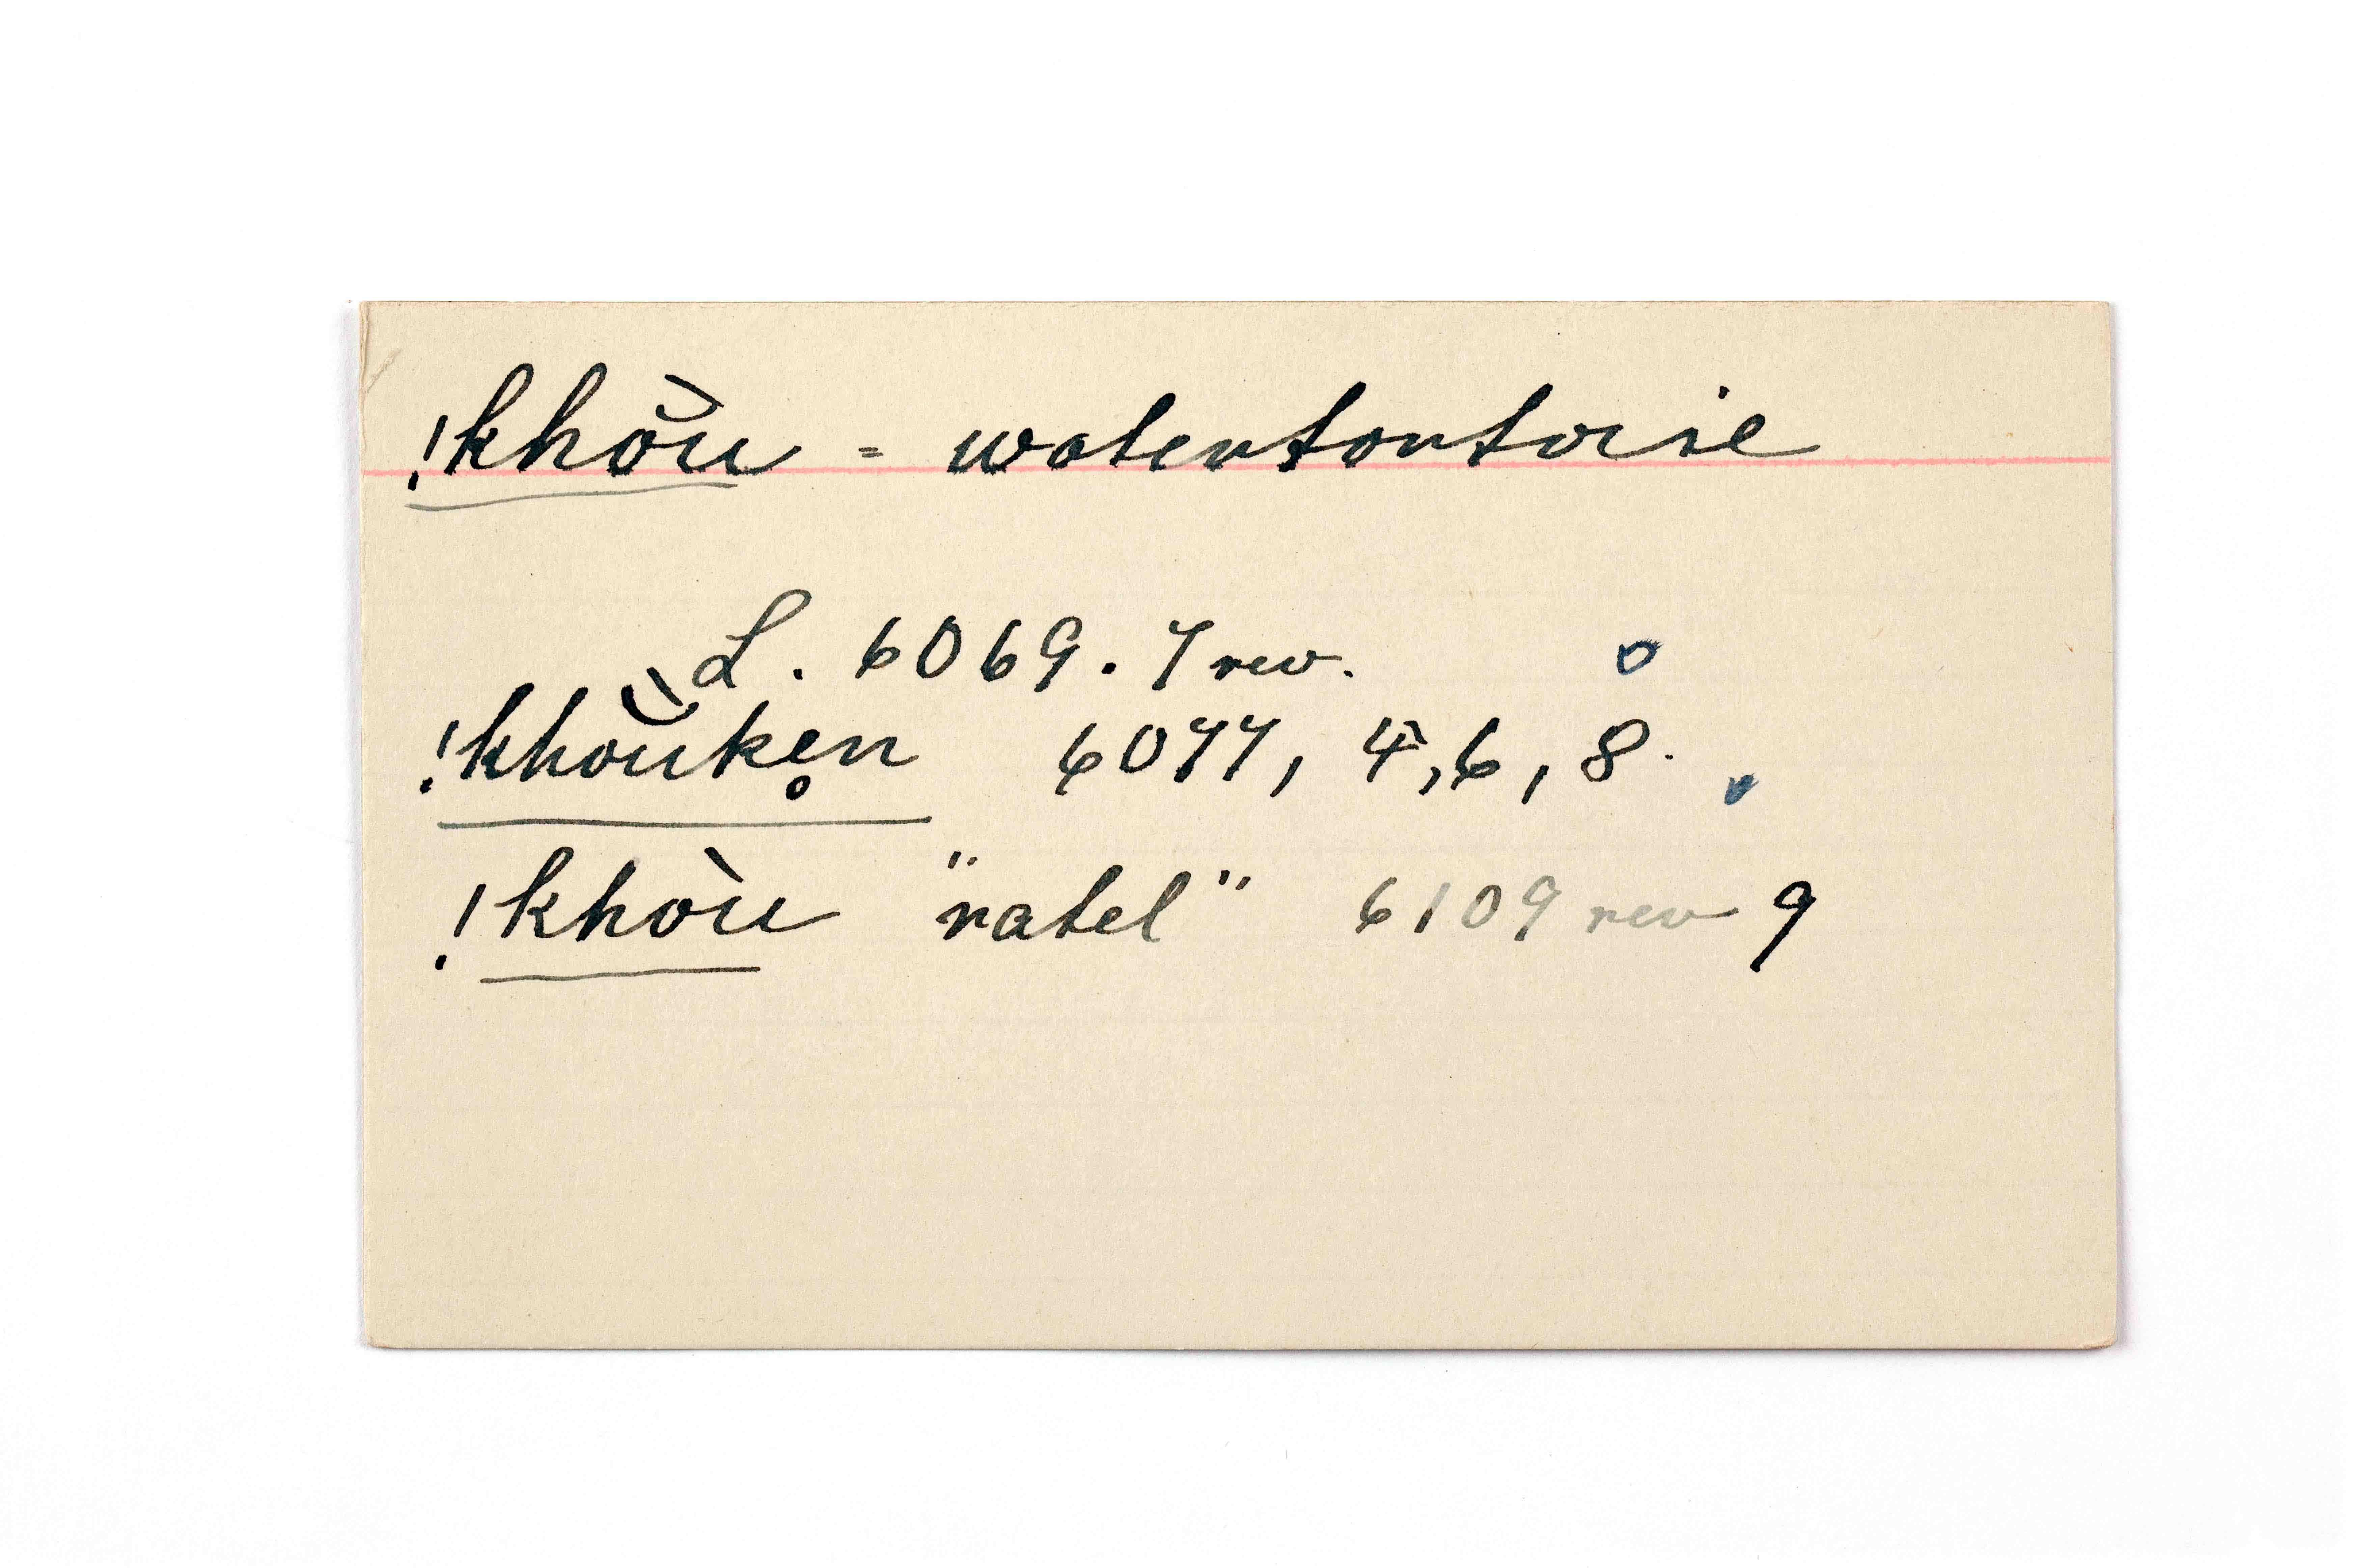 !khŏ̀u = watertortoise
L. 6069. 7 rev.
!khŏ̀uke̥n 6077, 4, 6, 8.
!khòu "ratel" 6109 rev 9